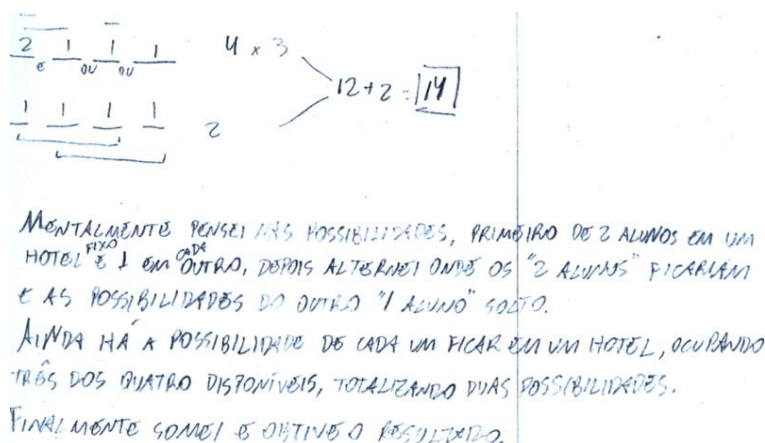 2 e 1 ou 1 ou 1 4 x 3
12 + 2 = 14
1 1 1 1 2
MENTALMENTE PENSEI NAS POSSIBILIDADES, PRIMEIRO DE 2 ALUNOS EM UM
HOTEL FIXO E 1 EM CADA OUTRO, DEPOIS ALTERNEI ONDE OS "2 ALUNOS" FICARIAM
E AS POSSIBILIDADES DO OUTRO "1 ALUNO" SOLTO.
AINDA HÁ A POSSIBILIDADE DE CADA UM FICAR EM UM HOTEL, OCUPANDO
TRÊS DOS QUATRO DISPONÍVEIS, TOTALIZANDO DUAS POSSIBILIDADES.
FINALMENTE SOMEI E OBTIVE O RESULTADO.